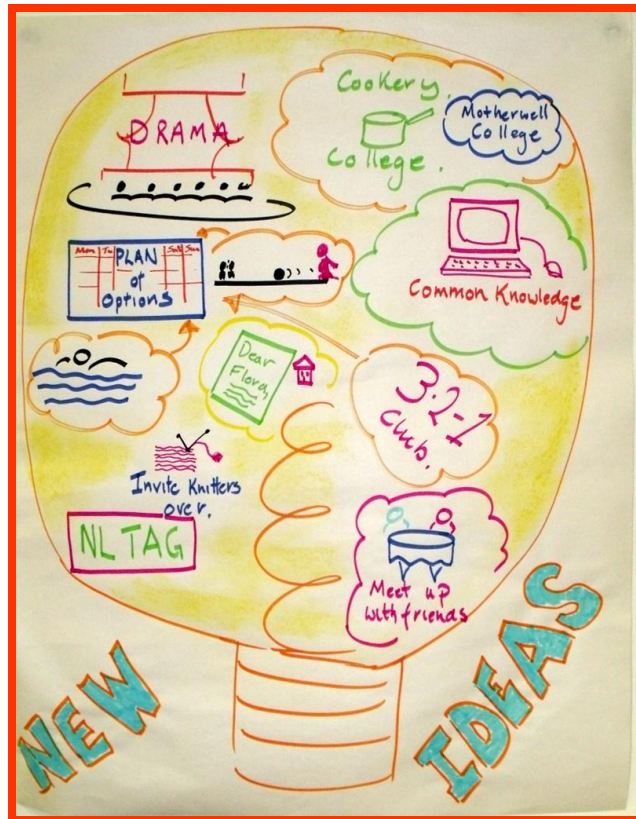 DRAMA
Cookery.
College.
Motherwell
College
Mon Tu Sat Sun
PLAN
of
Options
Common Knowledge
Dear
Flora,
3-2-1
club.
Invite Knitters
over.
NL TAG
Meet up
with friends
NEW
IDEAS